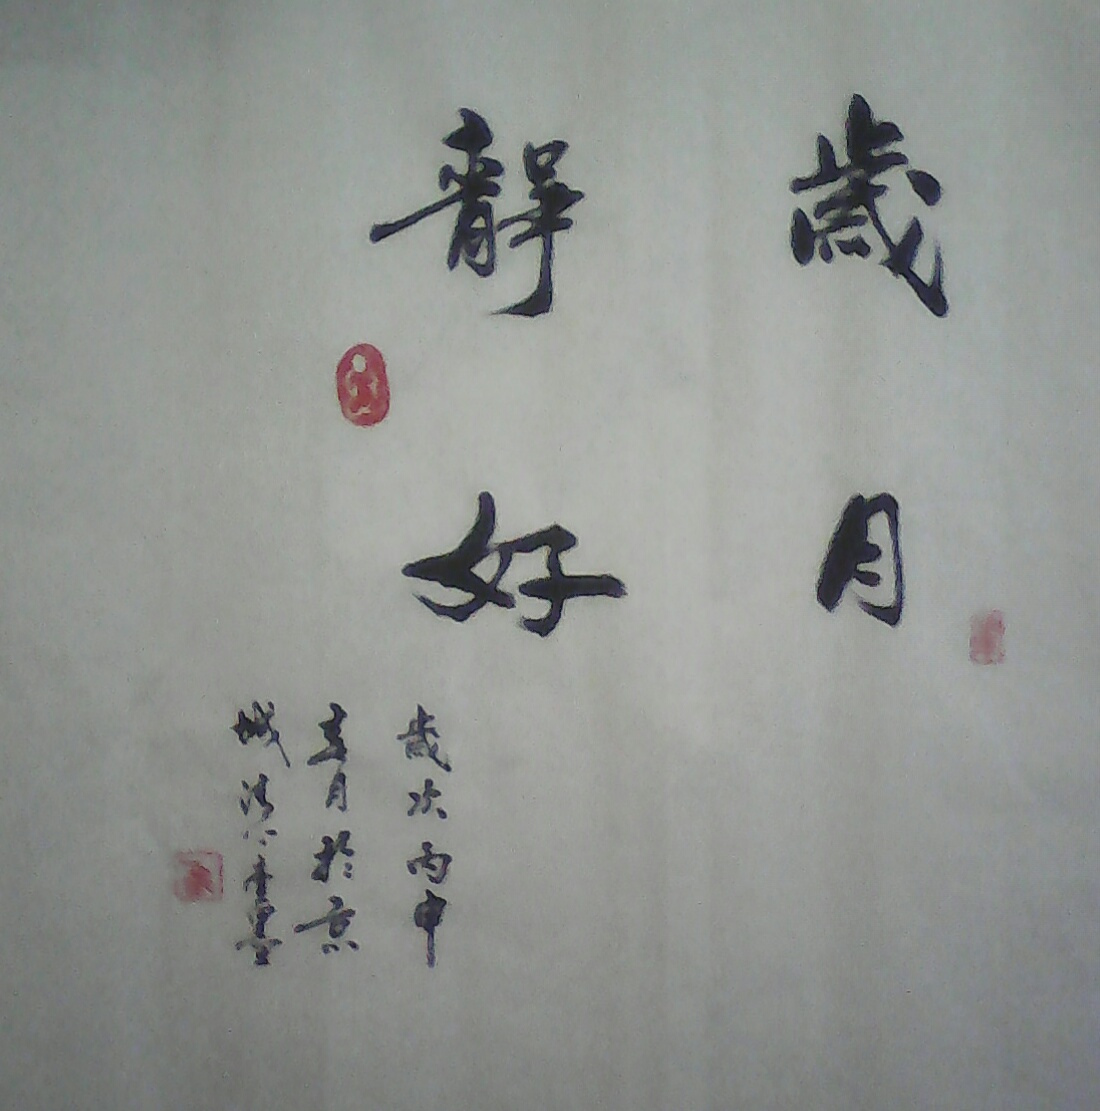 歲月
靜好
歲次丙申
月於京
城
墨